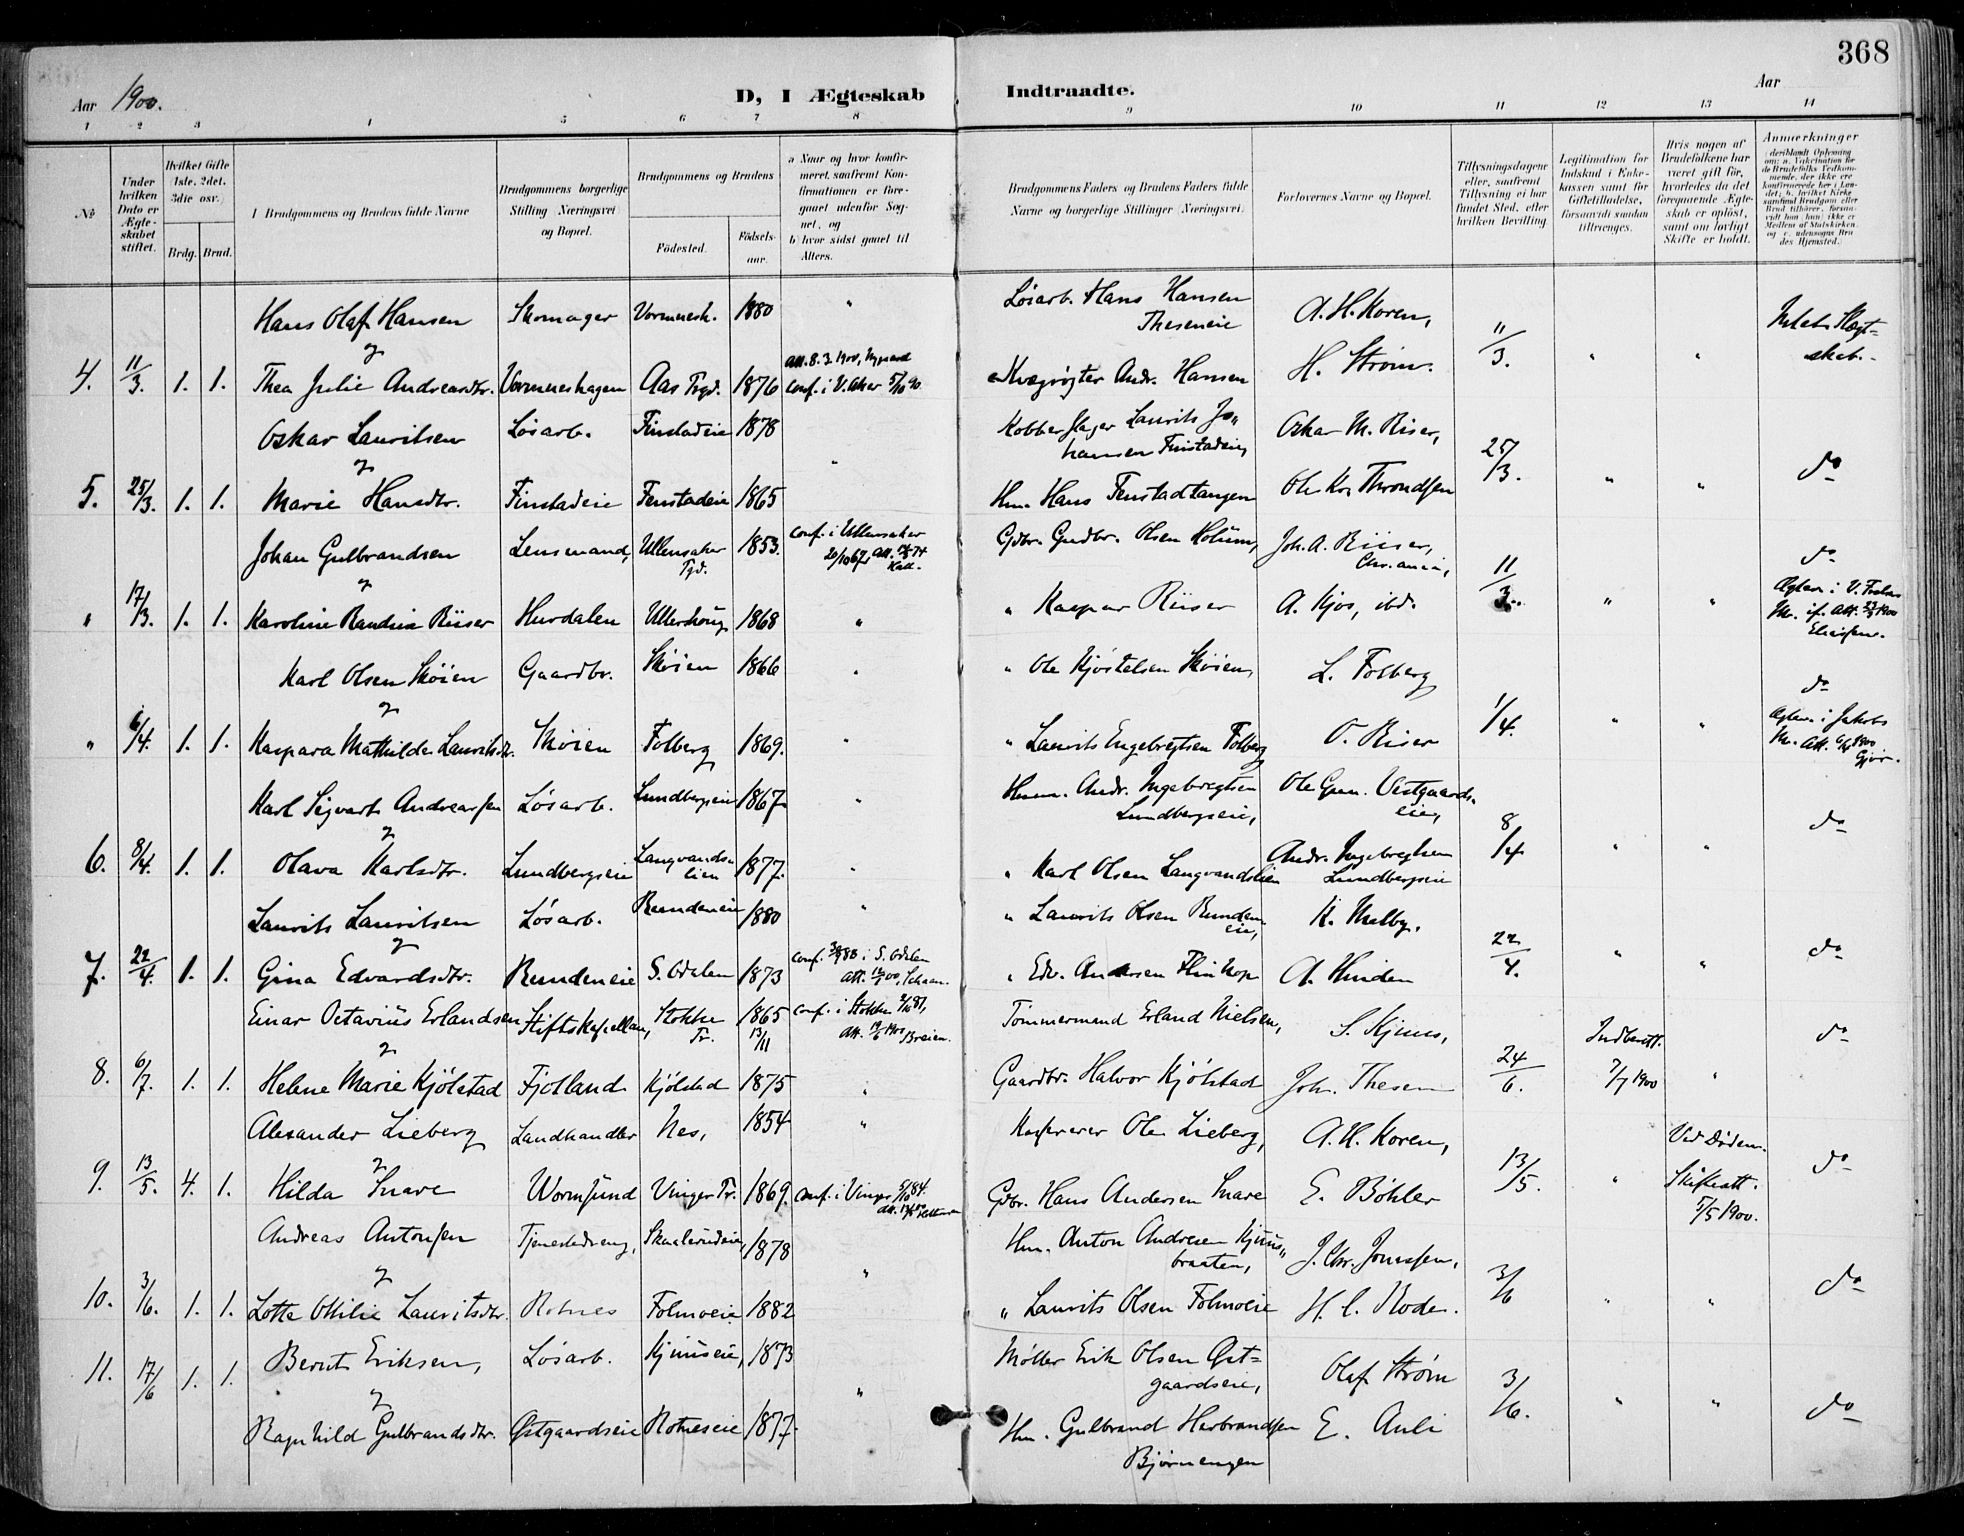 368
Aar 1900.
D, I Ægteskab Indtraadte.
Aar
1 2 3 4 5 6 7 8 9 10 11 12 13 14
No
Under hvilken Dato er Ægteskabet stiftet.
Hvilket Gifte 1ste. 2det. 3die osv.)
Brdg. Brud.
Brudgommens og Brudens fulde Navne
Brudgommens borgerlige Stilling (Næringsvei) og Bopæl.
Brudgommens og Brudens
Fødested.
Fødselsaar.
a) Naar og hvor konfirmeret, saafremt Konfirmationen er foregaaet udenfor Sognet, og
b) hvor sidst gaaet til Alters.
Brudgommens Faders og Brudens Faders fulde Navne og borgerlige Stillinger (Næringsvei).
Forlovernes Navne og Bopæl.
Tillysningsdagene eller, saafremt Tillysning ei har fundet Sted, efter hvilken Bevilling
Legitimation for Indskud i Enkekassen samt for Giftetilladelse, forsaavidt saadan tiltrænges.
Hvis nogen af Brudefolkene har været gift før, hvorledes da det foregaaende Ægteskab er opløst, samt om lovligt Skifte er holdt.
Anmerkninger
Hans Olaf Hansen Skomager Vormnesh. 1880 " Løsarb. Hans Hansen Theseneie A. H. Koren,
4. 11/3. 1. 1. Thea Julie Andreasdtr. Vormneshagen Aas Prgd. 1876 Att. 8.3.1900, Nygaard conf. i V. Aker 5/10 90 Kvægrøgter Andr. Hansen H. Strøm. 11/3. " " Intet Slægtskab.
Oskar Lauritsen Løsarb. Finstadeie 1878 Kobberslager Laurits Johansen Finstadeie, Oskar M. Riser,
5. 25/3. 1. 1. Marie Hansdtr. Finstadeie Fenstadeie 1865 " Hm. Hans Fenstadtangen Ole Kr. Throndsen 25/3. " " do
Johan Gulbrandsen Lensmand, Ullensaker Pgd. 1853. conf. i Ullensaker Gdbr. Gudbr. Olsen Holum, Joh. A. Riiser, Chr.ania,
" 17/3. 1. 1. Karoline Randine Riiser Hurdalen Ullershoug 1868 " " Kaspar Riiser A. Kjos, ibd. 11/3. " " do
Karl Olsen Skøien Gaardbr. Skøien 1866 " " Ole Kjøstelsen Skøien, L. Folberg
" 6/4. 1. 1. Kaspara Mathilde Lauritsdtr. Skøien Folberg 1869. " " Laurits Engebregtsen Folberg O. Riser 1/4. " " do Ægtev. i Jakobs K. Att. 6/4 1900 Gjør.
Karl Sigvart Andreassen Løsarb. Lundbergseie 1867. " Husm. Andr. Ingebregtsen Lundbergseie, Ole Gun. Vestgaardseie,
6. 8/4. 1. 1. Olava Karlsdtr. Lundbergseie Langvandslien 1877. " " Karl Olsen Langvandslien Andr. Ingebregtsen Lundbergseie 8/4 " " do
Laurits Lauritsen Løsarb. Rundeneie 1880 " " Laurits Olsen Rundeneie, K. Melby.
7. 22/4. 1. 1. Gina Edvardsdtr. Rundeneie S. Odalen 1873 conf. i S. Odalen " Edv. Andersen A. Hinden 22/4. " " do
Einar Octavius Erlandsen Stiftskapellan, Stokke Pr. 1865 13/11 conf. i Stokke Att. 19/6 1900 Breien. Tømmermand Erland Nielsen, S. Kjuus,
8. 6/7. 1. 1. Helene Marie Kjølstad Fjotland Kjølstad 1875 " Gaardbr. Halvor Kjølstad Joh. Thesen 24/6. Indberett. 7/7 1900 " do
Alexander Lieberg Landhandler Nes, 1854 " Ole Lieberg, A. H. Koren,
9. 13/5. 4. 1. Hilda Snare Wormsund Vinger Pr. 1869. conf. i Vinger Gdbr. Hans Andersen Snare E. Bøhler 13/5. " Ved Døden. Skifteatt. 5/5 1900. do
Andreas Antonsen Tjenestedreng, Skaalerudeie, 1878 Hm. Anton Andresen Kjuusbraaten, J. Chr. Jonassen,
10. 3/6. 1. 1. Lotte Ottilie Lauritsdtr. Rotnes Folmoeie 1882 " " Laurits Olsen Folmoeie H. C. Rode. 3/6 " " do
11. 17/6 1. 1. Bernt Eriksen, Løsarb. Kjuuseie, 1873 Møller Erik Olsen Østgaardseie, Olaf Strøm
Ragnhild Gulbrandsdtr. Østgaardseie Rotneseie 1877. " Hm. Gulbrand Herbrandsen Bjørnengen E. Auli 3/6. " " do